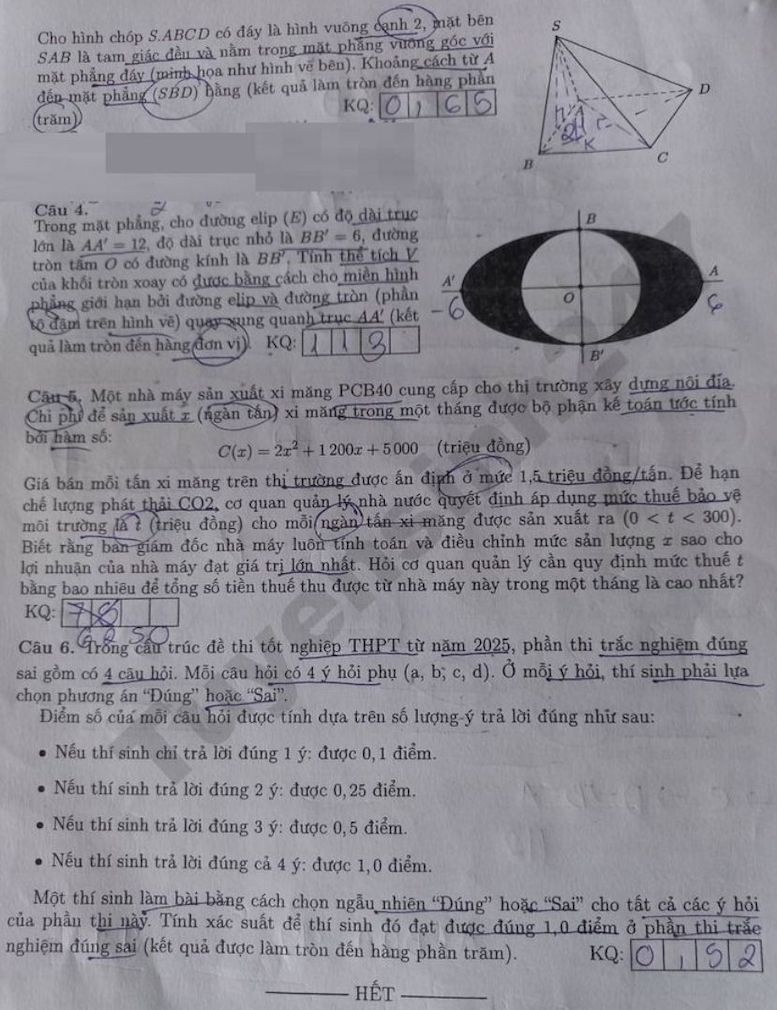 Cho hình chóp S.ABCD có đáy là hình vuông cạnh 2, mặt bên
SAB là tam giác đều và nằm trong mặt phẳng vuông góc với
mặt phẳng đáy (minh họa như hình vẽ bên). Khoảng cách từ A
đến mặt phẳng (SBD) bằng (kết quả làm tròn đến hàng phần
trăm) KQ: 0 , 6 5
S
D
A
H
K
B
C
Câu 4.
Trong mặt phẳng, cho đường elip (E) có độ dài trục
lớn là AA' = 12, độ dài trục nhỏ là BB' = 6, đường
tròn tâm O có đường kính là BB'. Tính thể tích V
của khối tròn xoay có được bằng cách cho miền hình
phẳng giới hạn bởi đường elip và đường tròn (phần
tô đậm trên hình vẽ) quay xung quanh trục AA' (kết
quả làm tròn đến hàng đơn vị). KQ: 1 1 3
B
A'
A
-6
6
O
B'
Câu 5. Một nhà máy sản xuất xi măng PCB40 cung cấp cho thị trường xây dựng nội địa.
Chi phí để sản xuất x (ngàn tấn) xi măng trong một tháng được bộ phận kế toán ước tính
bởi hàm số:
C(x) = 2x² + 1 200x + 5 000 (triệu đồng)
Giá bán mỗi tấn xi măng trên thị trường được ấn định ở mức 1,5 triệu đồng/tấn. Để hạn
chế lượng phát thải CO2, cơ quan quản lý nhà nước quyết định áp dụng mức thuế bảo vệ
môi trường là t (triệu đồng) cho mỗi ngàn tấn xi măng được sản xuất ra (0 < t < 300).
Biết rằng ban giám đốc nhà máy luôn tính toán và điều chỉnh mức sản lượng x sao cho
lợi nhuận của nhà máy đạt giá trị lớn nhất. Hỏi cơ quan quản lý cần quy định mức thuế t
bằng bao nhiêu để tổng số tiền thuế thu được từ nhà máy này trong một tháng là cao nhất?
KQ:
Câu 6. Trong cấu trúc đề thi tốt nghiệp THPT từ năm 2025, phần thi trắc nghiệm đúng
sai gồm có 4 câu hỏi. Mỗi câu hỏi có 4 ý hỏi phụ (a, b, c, d). Ở mỗi ý hỏi, thí sinh phải lựa
chọn phương án “Đúng” hoặc “Sai”.
Điểm số của mỗi câu hỏi được tính dựa trên số lượng ý trả lời đúng như sau:
• Nếu thí sinh chỉ trả lời đúng 1 ý: được 0,1 điểm.
• Nếu thí sinh trả lời đúng 2 ý: được 0,25 điểm.
• Nếu thí sinh trả lời đúng 3 ý: được 0,5 điểm.
• Nếu thí sinh trả lời đúng cả 4 ý: được 1,0 điểm.
Một thí sinh làm bài bằng cách chọn ngẫu nhiên “Đúng” hoặc “Sai” cho tất cả các ý hỏi
của phần thi này. Tính xác suất để thí sinh đó đạt được đúng 1,0 điểm ở phần thi trắc
nghiệm đúng sai (kết quả được làm tròn đến hàng phần trăm). KQ: 0 , 5 2
HẾT